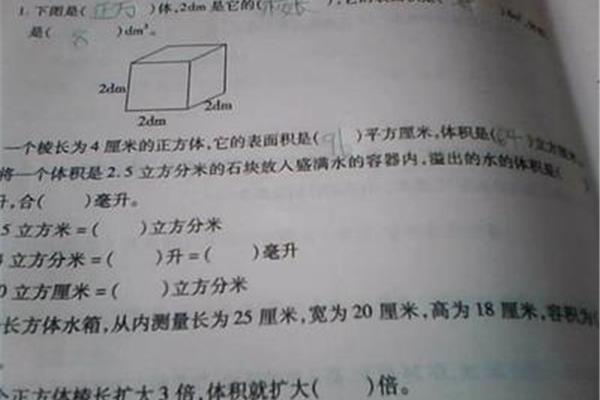 1. 下图是(正方)体,2dm 是它的(棱长),它的表面积是(
是( 8 )dm³。
2dm
2dm
2dm
一个棱长为 4 厘米的正方体,它的表面积是( 96 )平方厘米,体积是( 64 )立方厘米。
将一个体积是 2.5 立方分米的石块放入盛满水的容器内,溢出的水的体积是(
升,合( )毫升。
5 立方米=( )立方分米
立方分米=( )升=( )毫升
0 立方厘米=( )立方分米
长方体水箱,从内测量长为 25 厘米,宽为 20 厘米,高为 18 厘米,容积为(
个正方体棱长扩大 3 倍,体积就扩大( )倍。